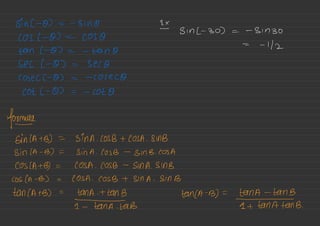 sin(-θ) = -sinθ
cos(-θ) = cosθ
tan(-θ) = -tanθ
sec(-θ) = secθ
cosec(-θ) = -cosecθ
cot(-θ) = -cotθ
Ex sin(-30) = -sin30
= -1/2
formula
sin(A+B) = sinA. cosB + cosA. sinB
sin(A-B) = sinA. cosB - sinB. cosA
cos(A+B) = cosA. cosB - sinA. sinB
cos(A-B) = cosA. cosB + sinA. sinB
tan(A+B) = tanA + tanB / 1 - tanA. tanB
tan(A-B) = tanA - tanB / 1 + tanA tanB